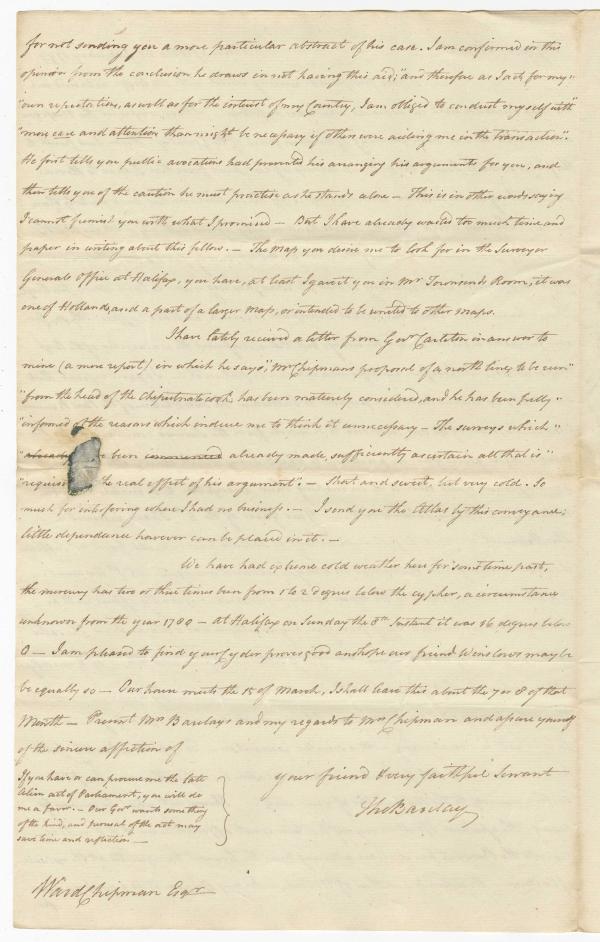 for not sending you a more particular abstract of his case. I am confirmed in this
opinion from the conclusion he draws in not having this aid; "and therefore as I act for my"
"own reputation, as well as for the interest of my Country, I am obliged to conduct myself with"
"more care and attention than might be necessary if others were aiding me in the transaction".
He first tells you public avocations had prevented his arranging his arguments for you, and
then tells you of the caution he must practise as he stands alone — This is in other words saying
I cannot furnish you with what I promised — But I have already wasted too much time and
paper in writing about this fellow. — The map you desire me to look for in the Surveyor
Generals Office at Halifax, you have, at least I gave it you in Mr Townsends Room, it was
one of Hollands, and a part of a larger map, or intended to be united to other maps.
I have lately received a letter from Govr Carleton in answer to
mine (a mere report) in which he says, "Mr Chipmans proposal of a north line to be run"
"from the head of the Cheputnatecook has been maturely considered, and he has been fully"
"informed of the reasons which induce me to think it unnecessary — The surveys which"
"already been already made, sufficiently ascertain all that is"
the real effect of his argument". — Short and sweet, but very cold. So
much for interfering where I had no business. — I send you the Atlas by this conveyance,
little dependance however can be placed in it. —
We have had extreme cold weather here for sometime past,
the mercury has two or three times been from 1 to 2 degrees below the cypher, a circumstance
unknown from the year 1780 — at Halifax on Sunday the 8th Instant it was 16 degrees below
0 — I am pleased to find your Cyder proves good and hope our friend Winslows may be
be equally so — Our house meets the 15 of March, I shall leave this about the 7 or 8 of that
Month — Present Mrs Barclays and my regards to Mrs Chipman and assure yourself
of the sincere affection of
your friend & very faithful Servant
Tho Barclay
If you have or can procure me the late
Alien act of Parliament, you will do
me a favor. — Our Govr wants something
of the kind, and perusal of the act may
save time and reflection. —
Ward Chipman Esqr